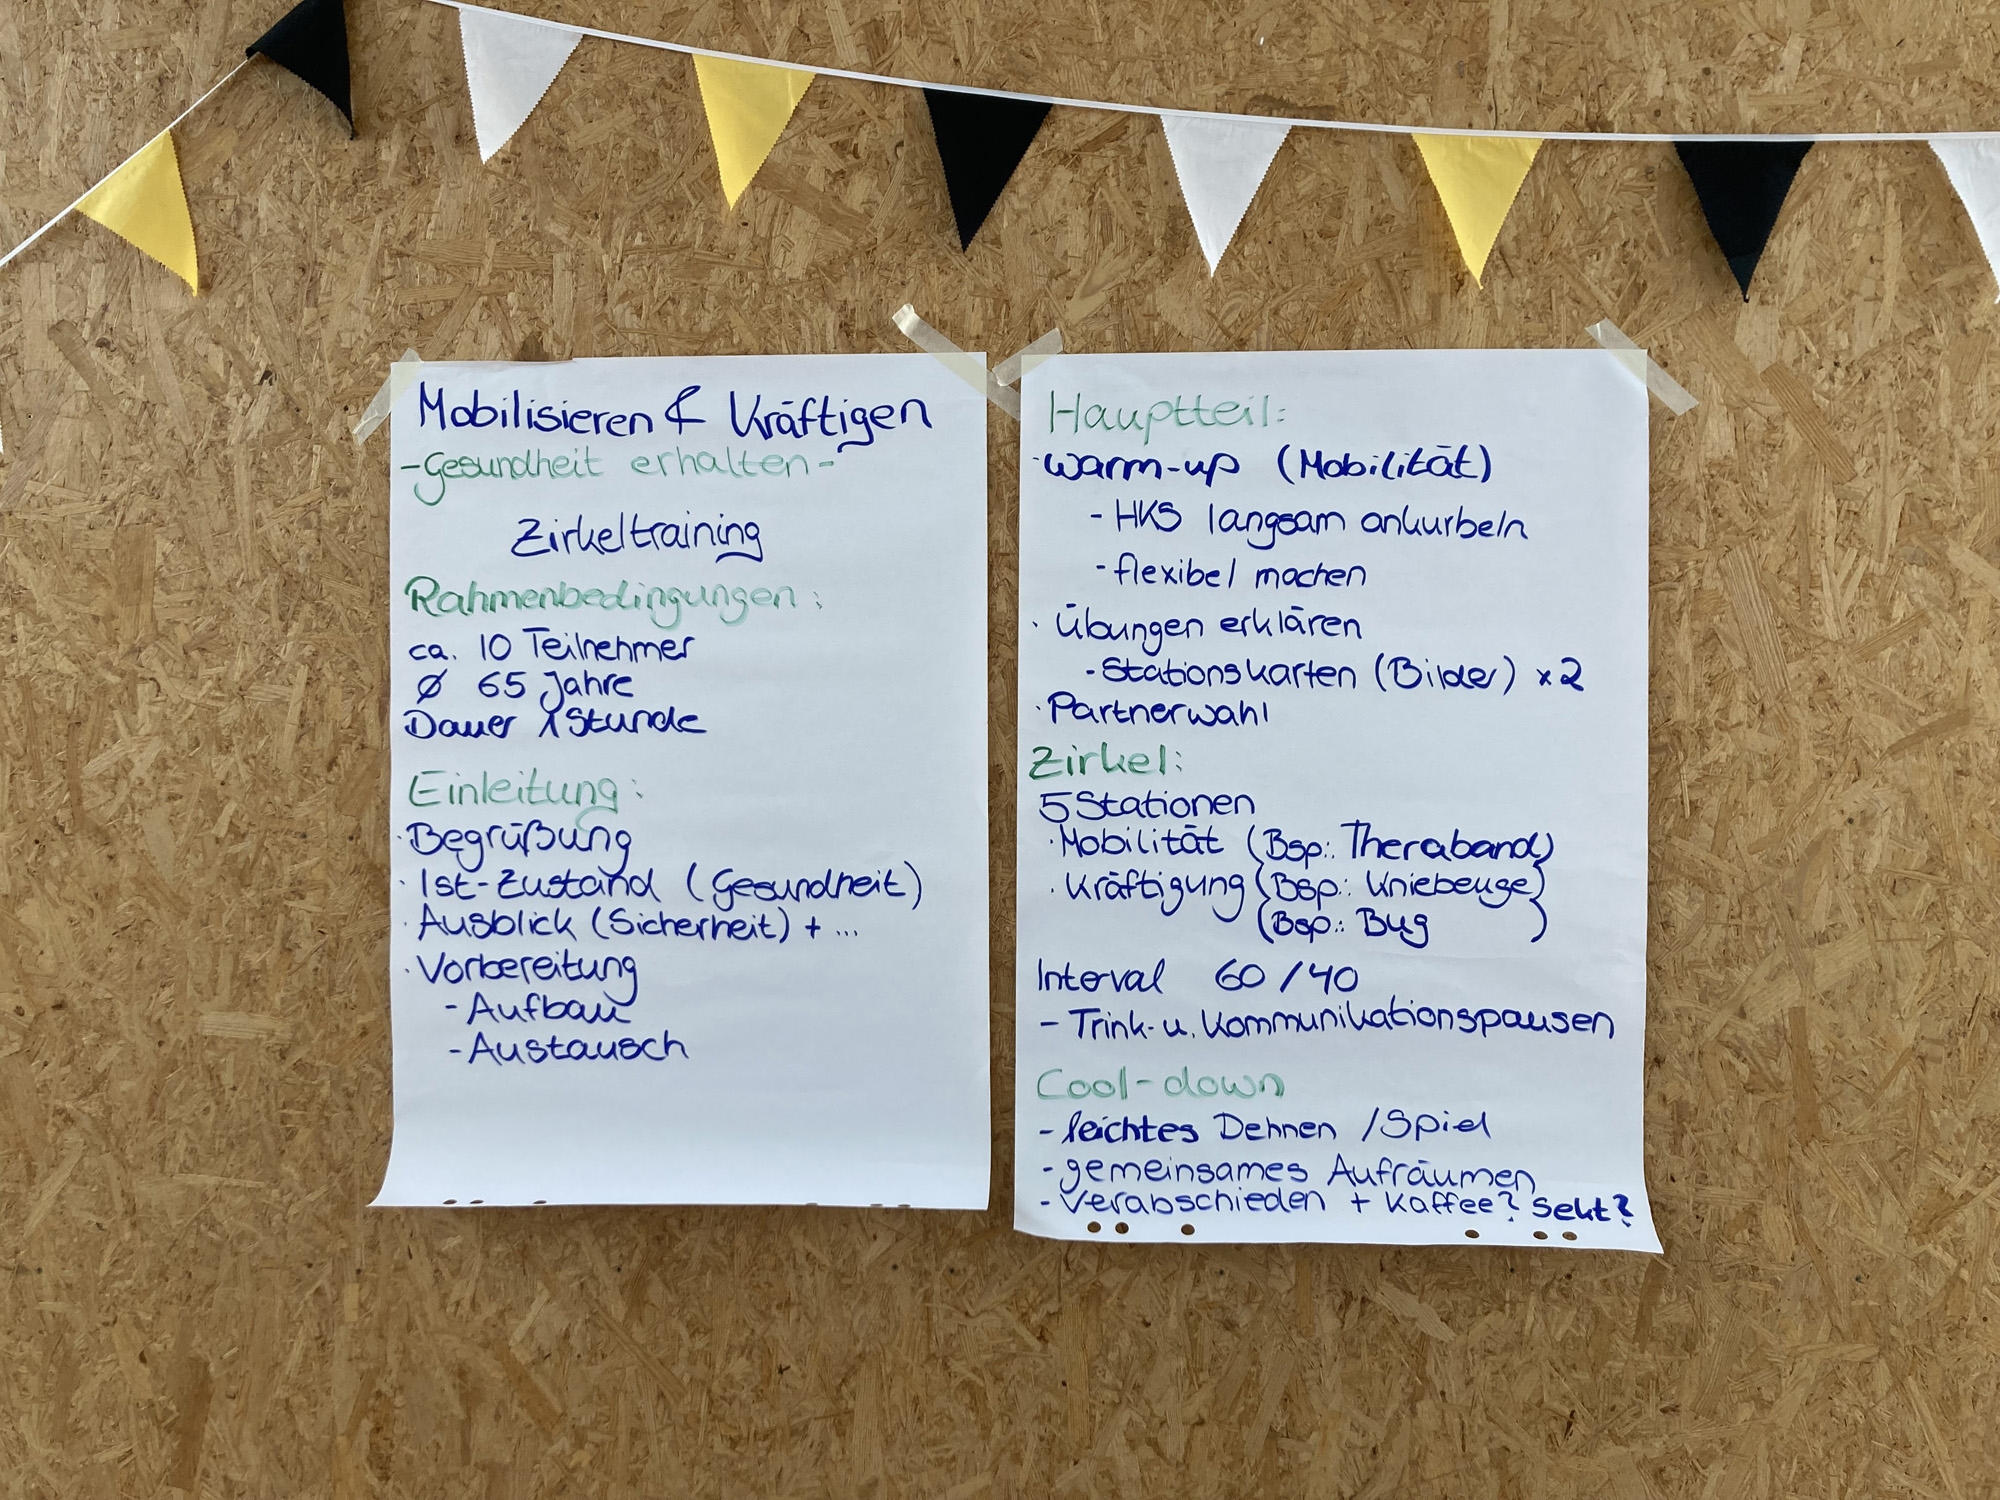 Mobilisieren & Kräftigen
-Gesundheit erhalten-
Zirkeltraining
Rahmenbedingungen:
ca. 10 Teilnehmer
Ø 65 Jahre
Dauer 1 Stunde
Einleitung:
· Begrüßung
· Ist-Zustand (Gesundheit)
· Ausblick (Sicherheit) + ...
· Vorbereitung
- Aufbau
- Austausch
Hauptteil:
· Warm-up (Mobilität)
- HKS langsam ankurbeln
- flexibel machen
· Übungen erklären
- Stationskarten (Bilder) x2
· Partnerwahl
Zirkel:
5 Stationen
· Mobilität (Bsp.: Theraband)
· Kräftigung (Bsp.: Kniebeuge)
(Bsp.: Bug )
Interval 60/40
- Trink- u. Kommunikationspausen
Cool-down
- leichtes Dehnen / Spiel
- gemeinsames Aufräumen
- Verabschieden + Kaffee? Sekt?